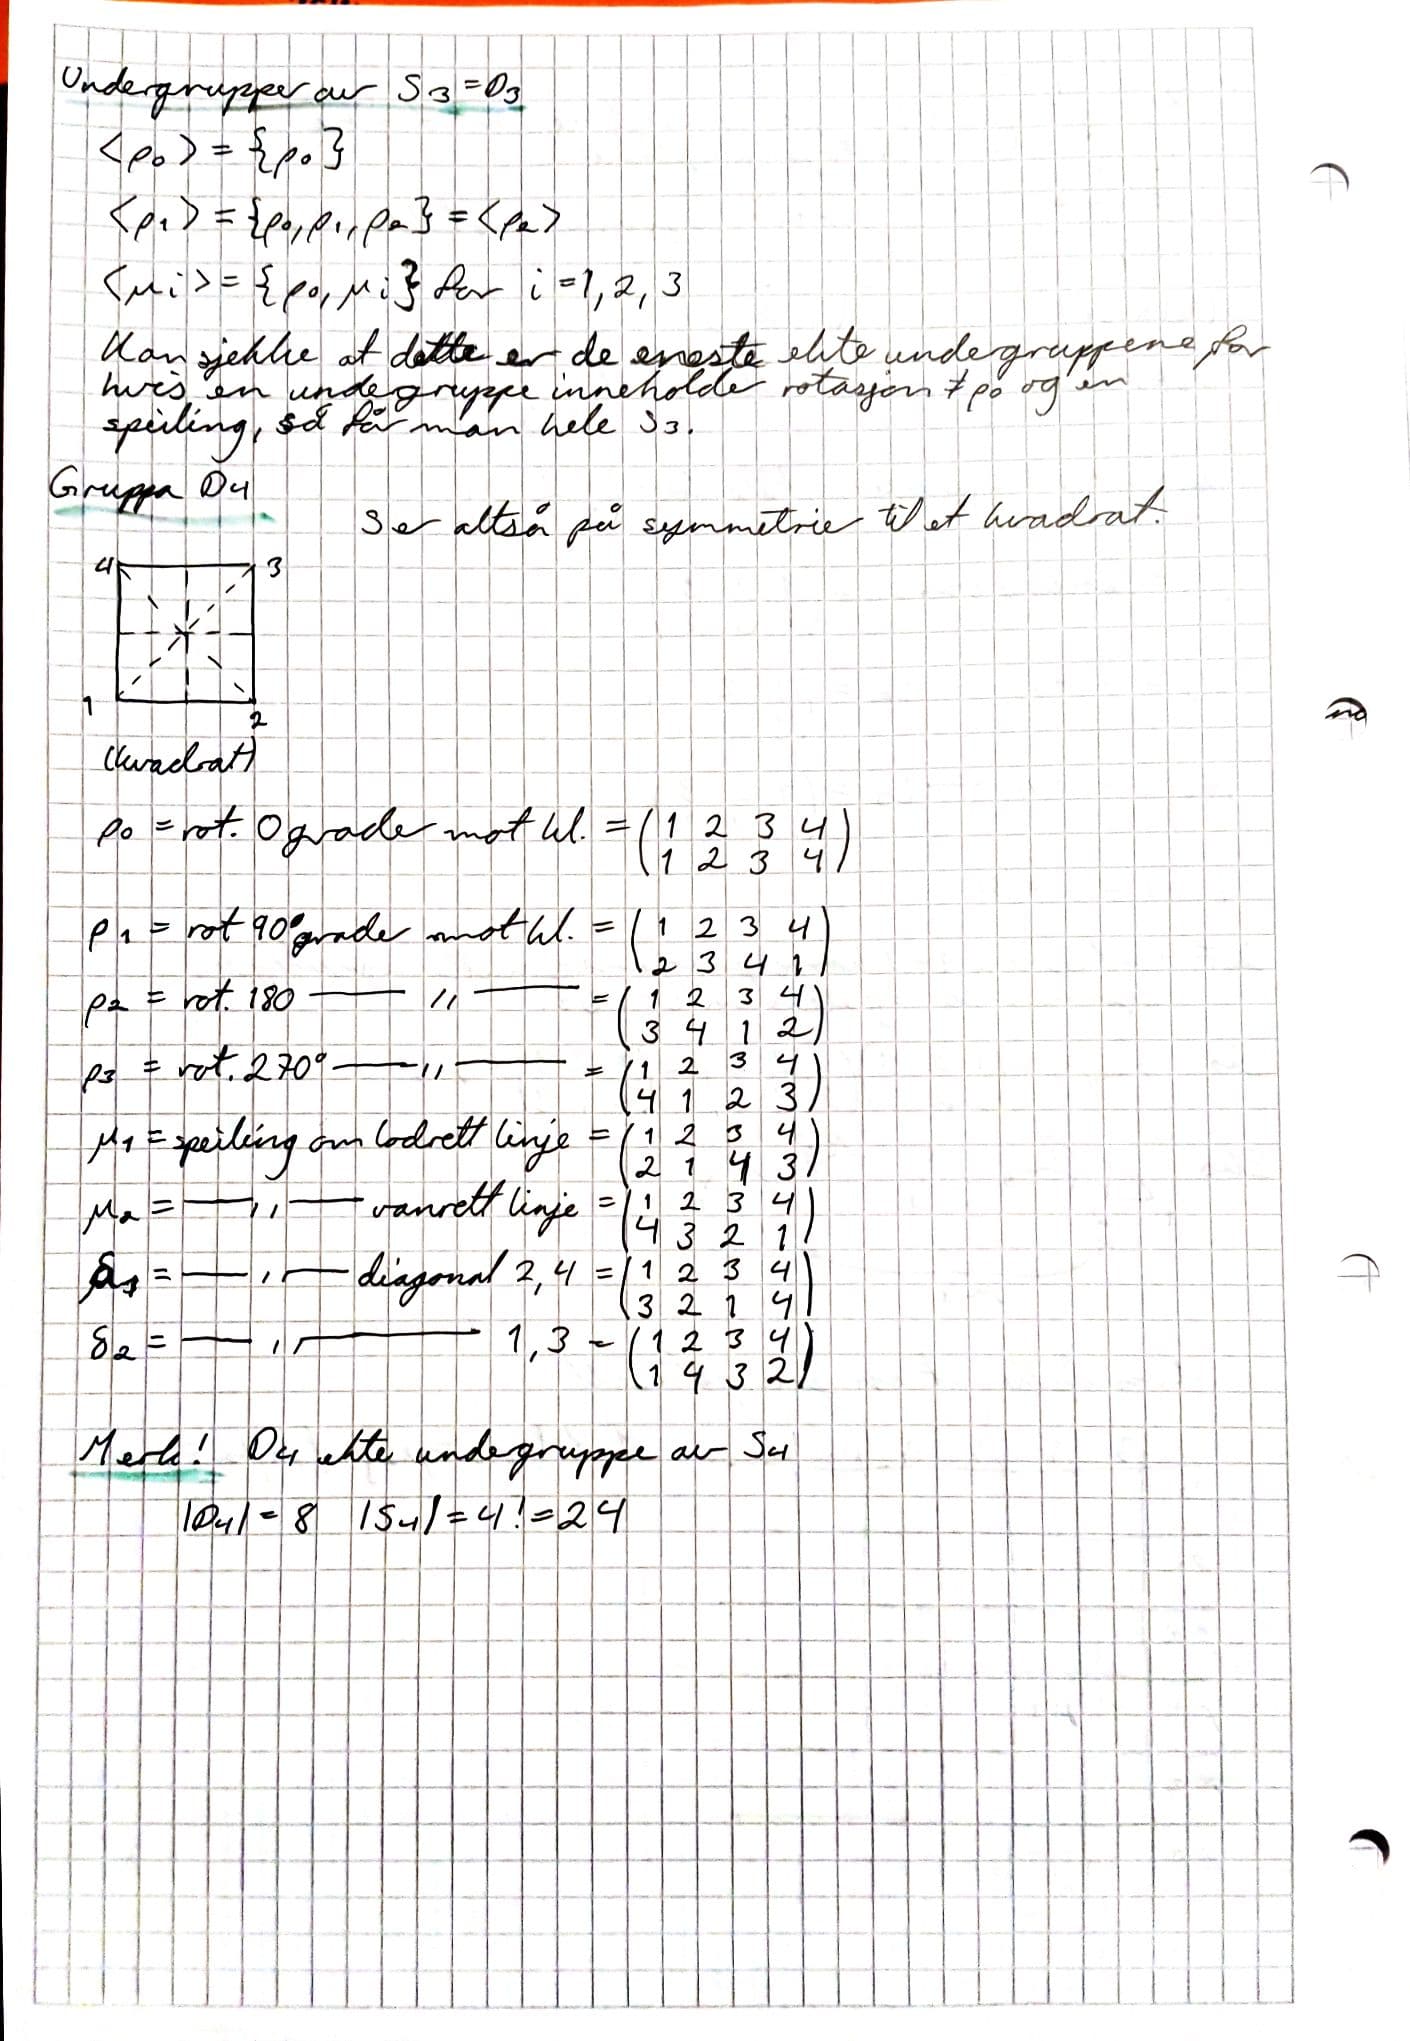 Undergrupper av S3=D3
<ρ0> = {ρ0}
<ρ1> = {ρ0, ρ1, ρ2} = <ρ2>
<μi> = {ρ0, μi} for i=1,2,3
Kan sjekke at dette er de eneste ekte undergruppene, for
hvis en undergruppe inneholder rotasjon ≠ ρ0 og en
speiling, så får man hele S3.
Gruppa D4
Ser altså på symmetrier til et kvadrat.
4 3
1 2
(kvadrat)
ρ0 = rot. 0 grader mot kl. = (1 2 3 4)
(1 2 3 4)
ρ1 = rot 90° grader mot kl. = (1 2 3 4)
(2 3 4 1)
ρ2 = rot. 180 —— ,, —— = (1 2 3 4)
(3 4 1 2)
ρ3 = rot. 270° —— ,, —— = (1 2 3 4)
(4 1 2 3)
μ1 = speiling om lodrett linje = (1 2 3 4)
(2 1 4 3)
μ2 = —— ,, —— vanrett linje = (1 2 3 4)
(4 3 2 1)
δ1 = —— ,, —— diagonal 2,4 = (1 2 3 4)
(3 2 1 4)
δ2 = —— ,, —— 1,3 = (1 2 3 4)
(1 4 3 2)
Merk! D4 ekte undergruppe av S4
|D4| = 8 |S4| = 4! = 24